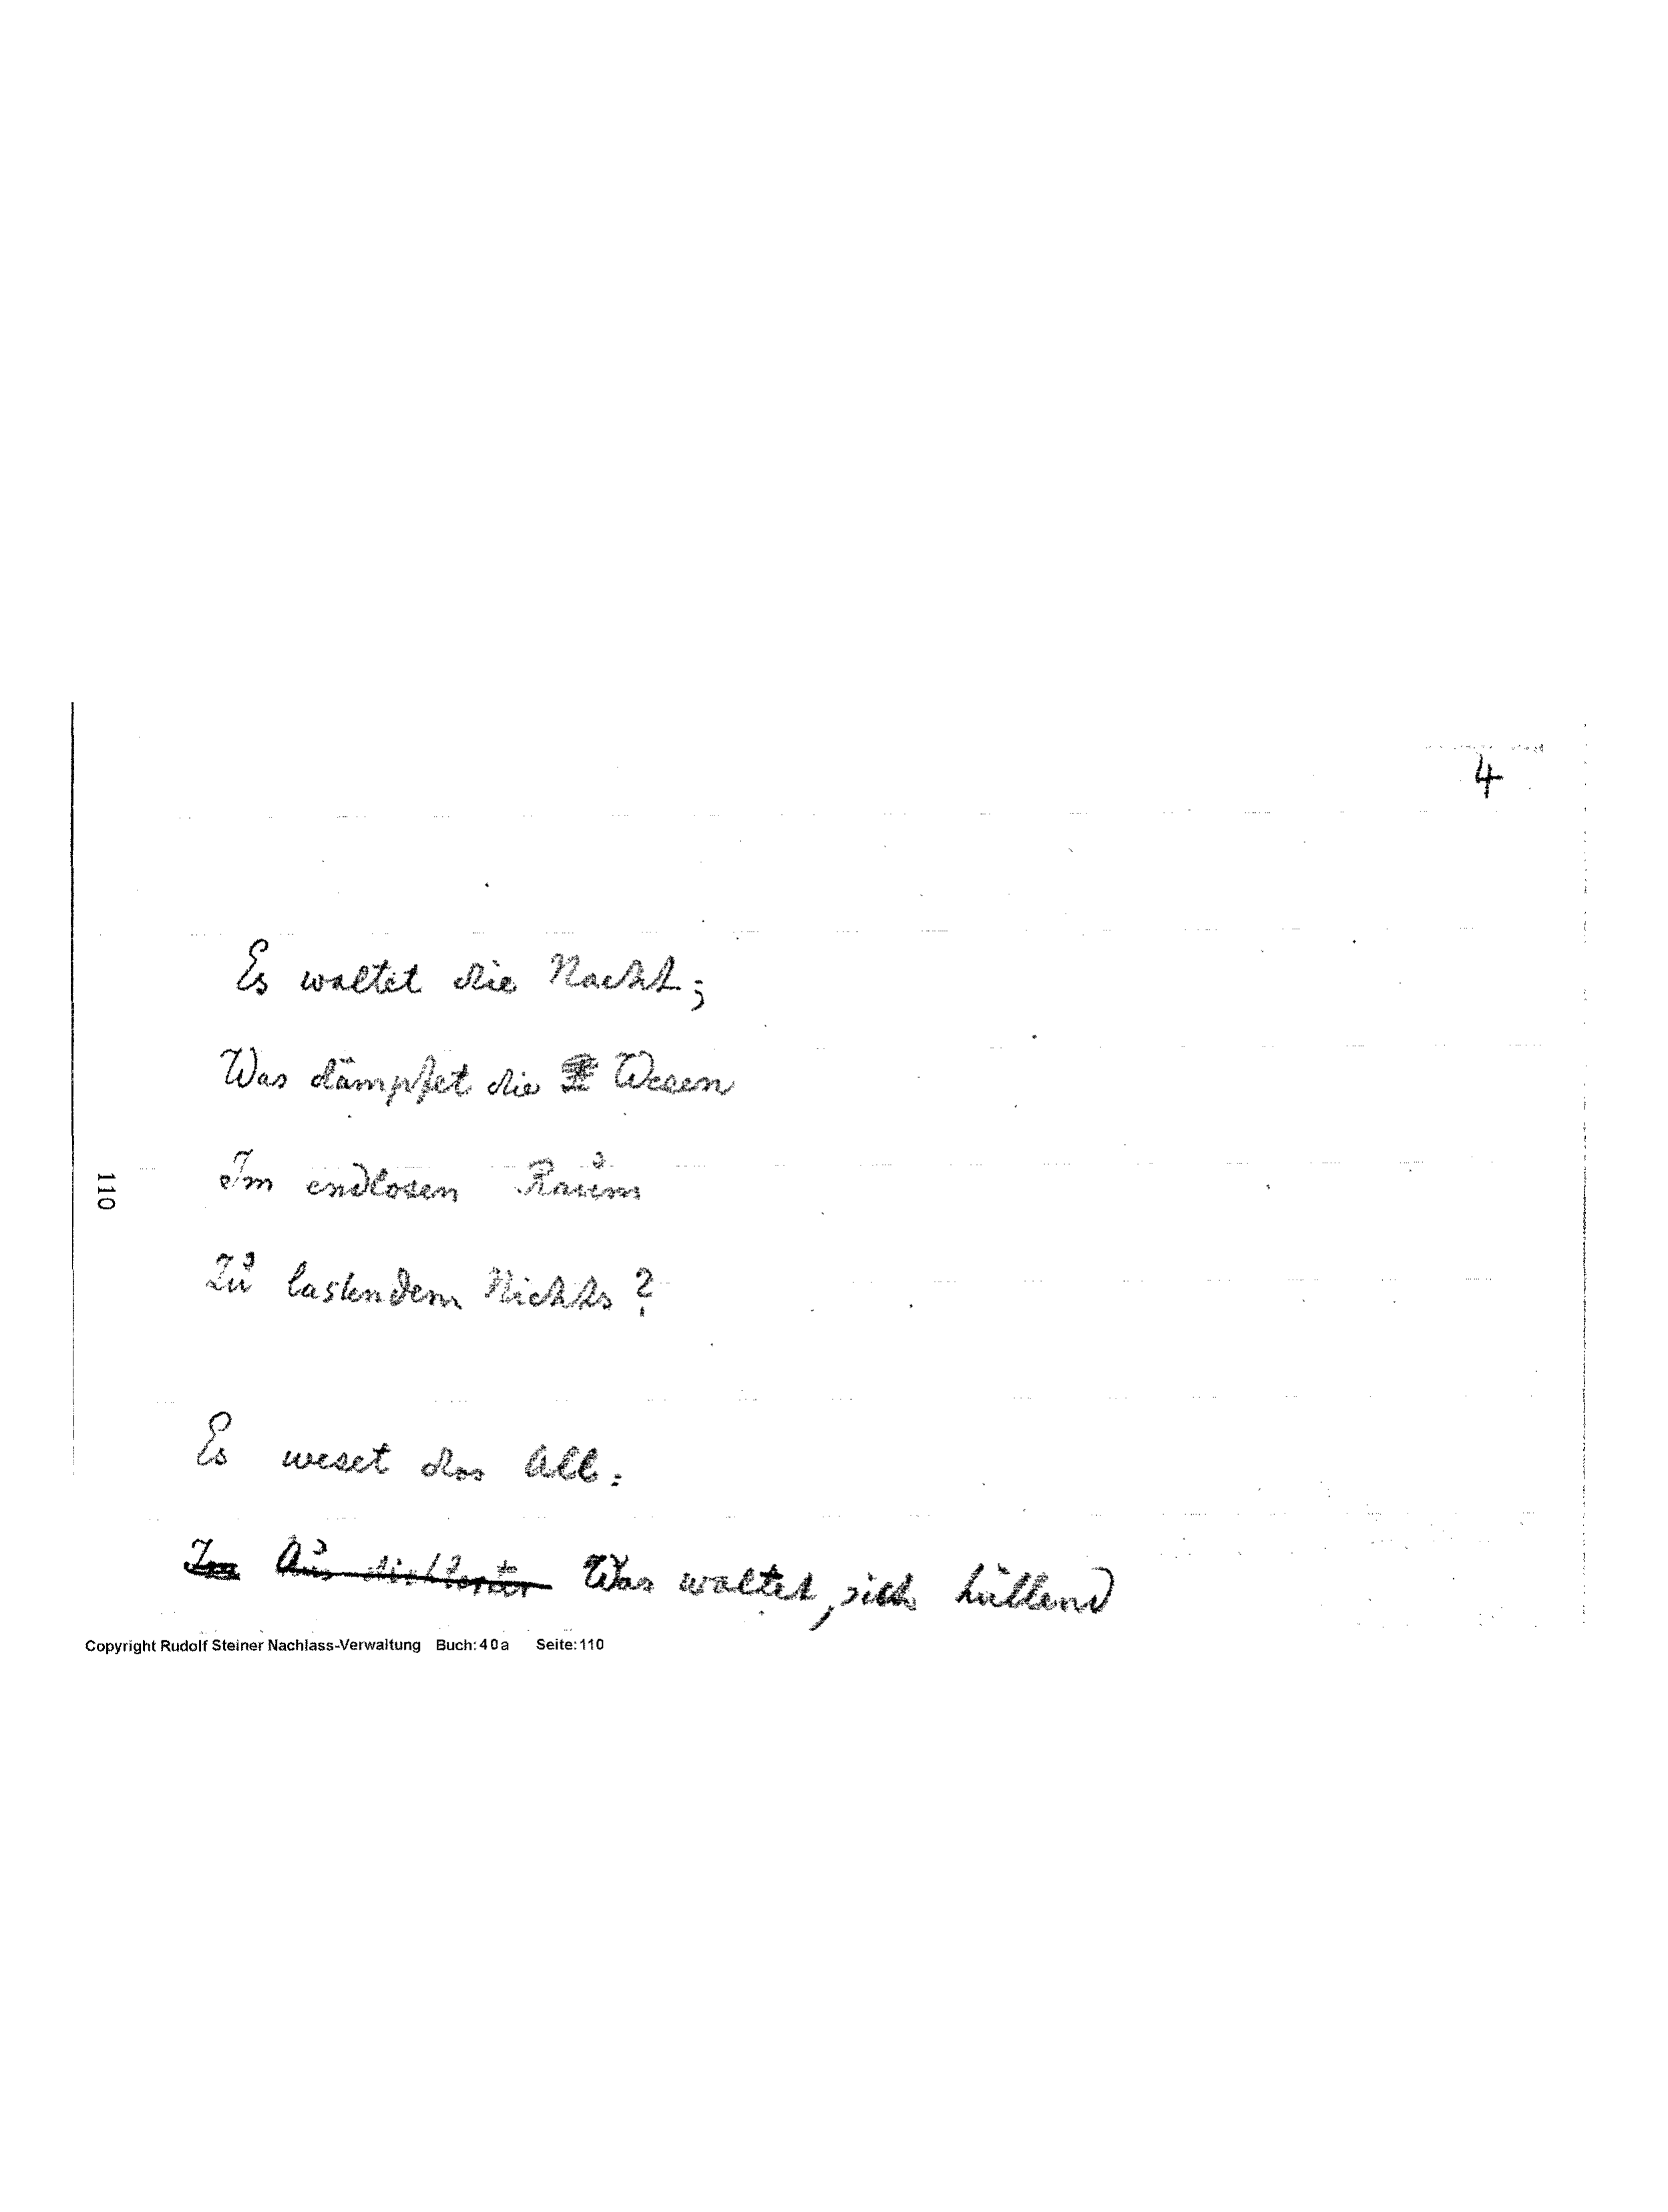 4
Es waltet die Nacht;
Was dämpfet die Wesen
Im endlosen Raum
110
Zu lastendem Nichts?
Es weset das All:
Im Aus Was waltet, sich hüllend
Copyright Rudolf Steiner Nachlass-Verwaltung Buch: 40a Seite: 110